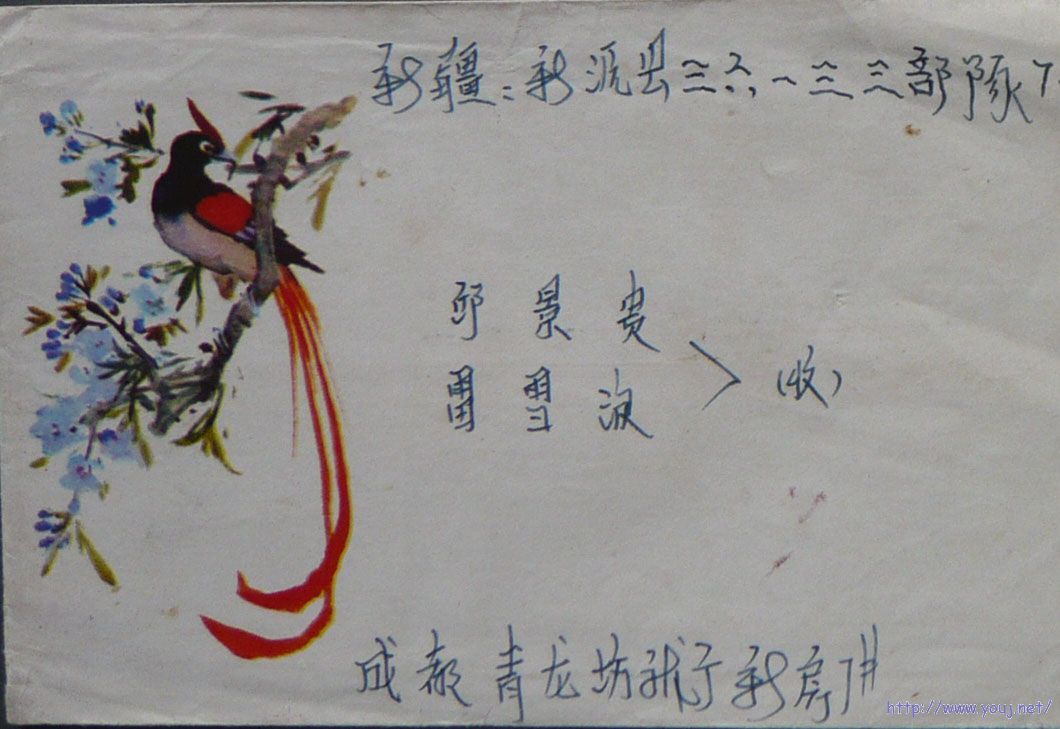 新疆:新源县三六一三三部隊7
邱景贵
雷雪波
(收)
成都青龙坊 新房7#
http://www.youj.net/